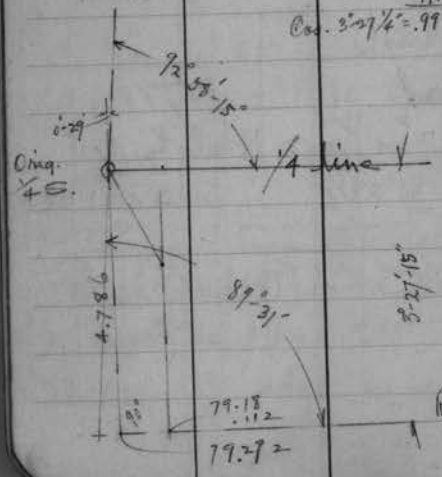 Cos. 3°-27¼' = .99
92°
58'
15"
0°-29'
Orig.
¼ S.
¼ line
4.786
89°
31'
3°-27'-15"
79.18
.112
79.292